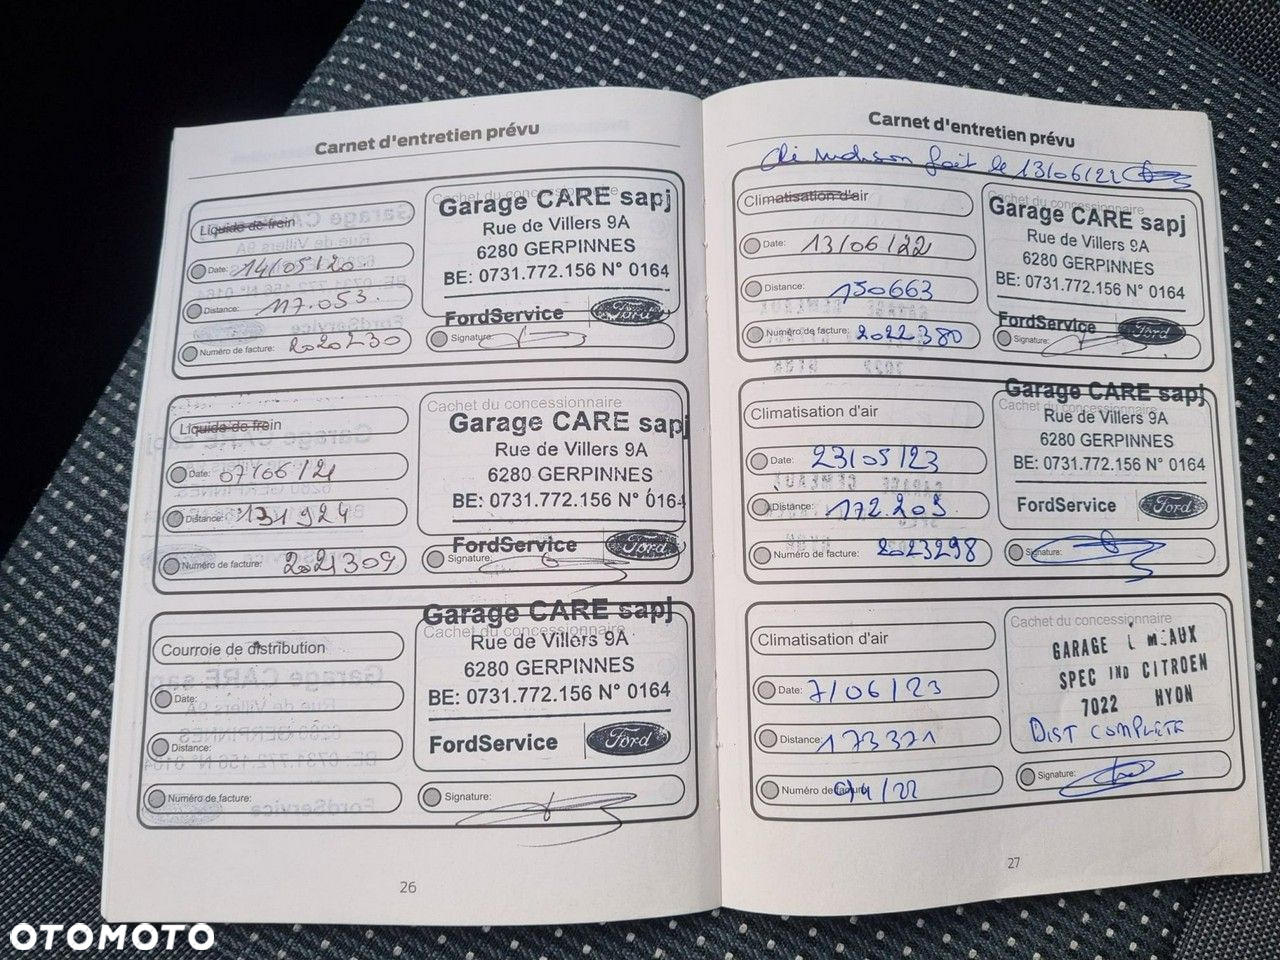 Carnet d'entretien prévu
Liquide de frein
Date: 14/05/20
Distance: 117.053.
Numéro de facture: 2020230
Cachet du concessionnaire
Garage CARE sapj
Rue de Villers 9A
6280 GERPINNES
BE: 0731.772.156 N° 0164
FordService Ford
Signature:
Liquide de frein
Date: 07/06/21
Distance: 131924
Numéro de facture: 2021309
Cachet du concessionnaire
Garage CARE sapj
Rue de Villers 9A
6280 GERPINNES
BE: 0731.772.156 N° 0164
FordService Ford
Signature:
Courroie de distribution
Date:
Distance:
Numéro de facture:
Garage CARE sapj
Cachet du concessionnaire
Rue de Villers 9A
6280 GERPINNES
BE: 0731.772.156 N° 0164
FordService Ford
Signature:
26
Carnet d'entretien prévu
fait le 13/06/22
Climatisation d'air
Date: 13/06/22
Distance: 150663
Numéro de facture: 2022380
Cachet du concessionnaire
Garage CARE sapj
Rue de Villers 9A
6280 GERPINNES
BE: 0731.772.156 N° 0164
FordService Ford
Signature:
Climatisation d'air
Date: 23/05/23
Distance: 172.203
Numéro de facture: 2023298
Garage CARE sapj
Cachet du concessionnaire
Rue de Villers 9A
6280 GERPINNES
BE: 0731.772.156 N° 0164
FordService Ford
Signature:
Climatisation d'air
Date: 7/06/23
Distance: 173321
Numéro de facture: /22
Cachet du concessionnaire
GARAGE
SPEC IND CITROEN
7022 HYON
DIST COMPLETE
Signature:
27
OTOMOTO